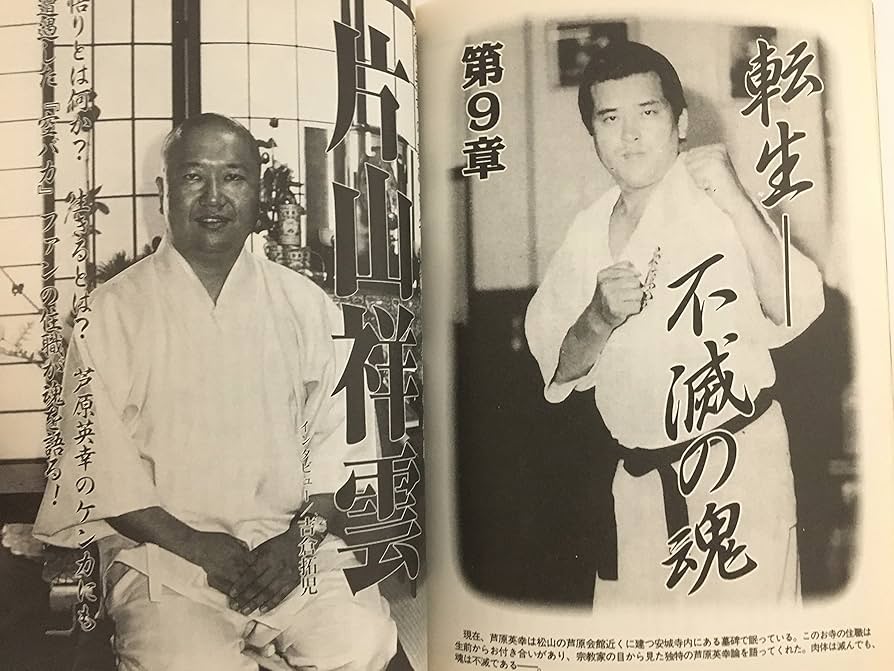 転生――
不滅の魂
第9章
現在、芦原英幸は松山の芦原会館近くに建つ安城寺内にある墓碑で眠っている。このお寺の住職は
生前からお付き合いがあり、宗教家の目から見た独特の芦原英幸論を語ってくれた。肉体は滅んでも、
魂は不滅である――。
片山祥雲
インタビュー/吉倉拓児
悟りとは何か? 生きるとは? 芦原英幸のケンカにも
遭遇した『空バカ』ファンの住職が魂を語る!